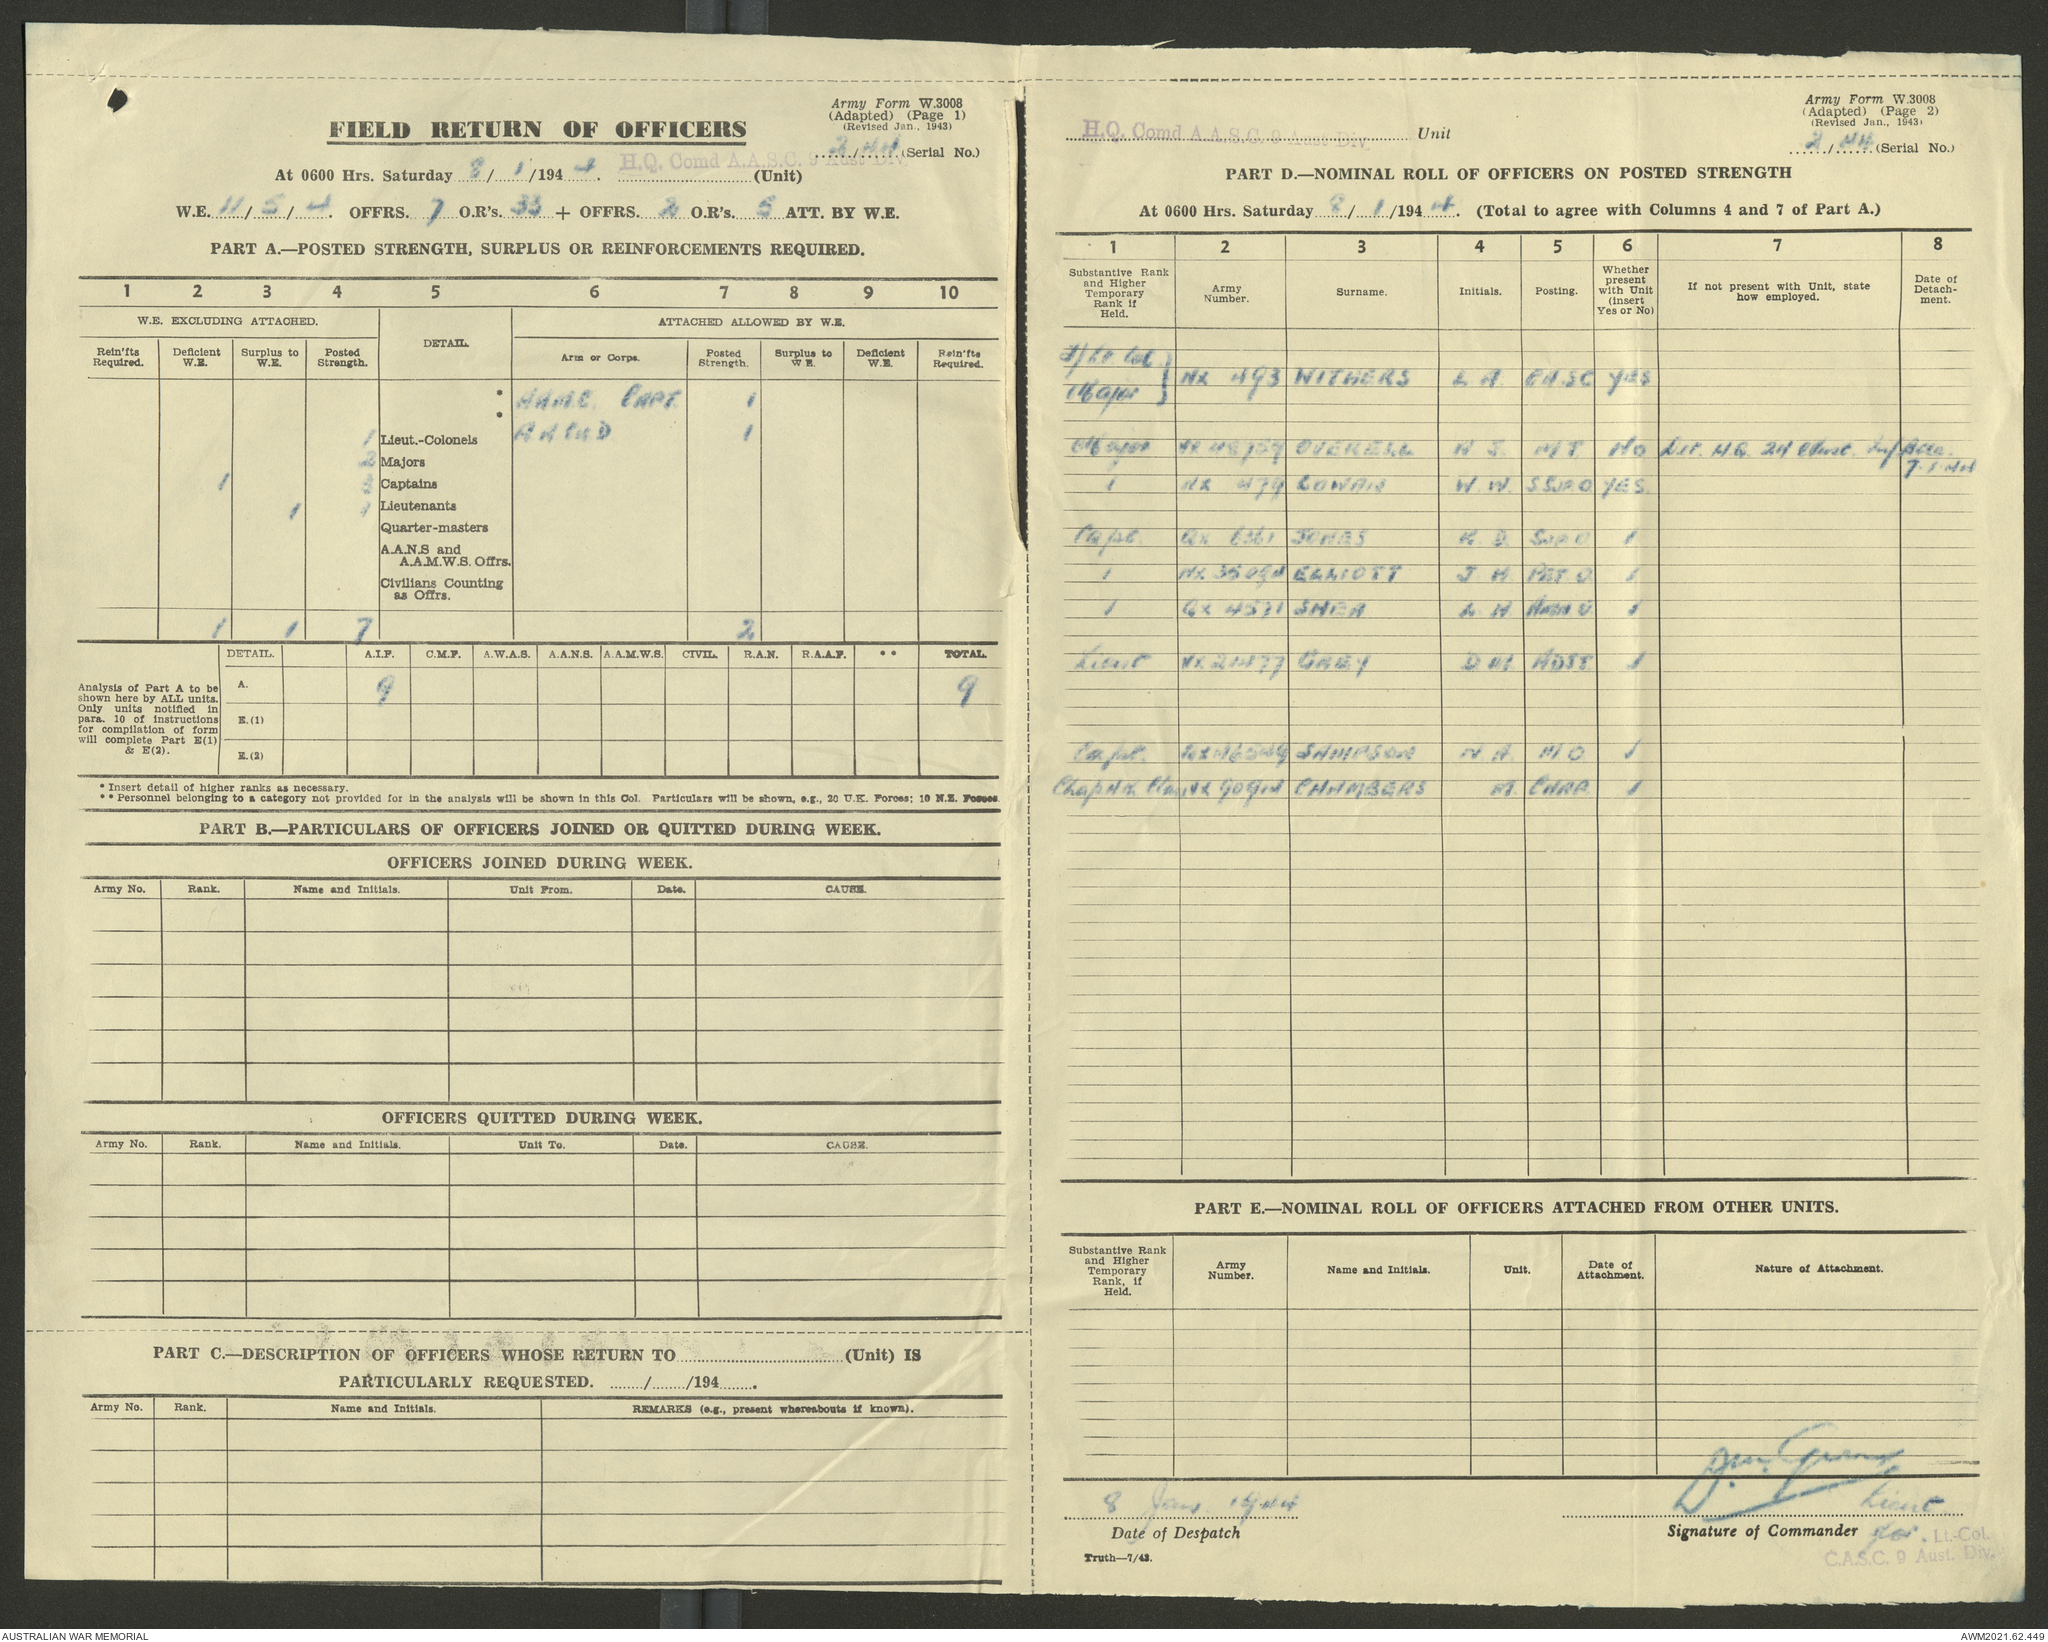 Army Form W.3008
(Adapted) (Page 1)
(Revised Jan., 1943)
FIELD RETURN OF OFFICERS
2/44 (Serial No.)
At 0600 Hrs. Saturday 8/1/1944. H.Q. Comd A.A.S.C. 9 Aust Div (Unit)
W.E. 11/5/4 OFFRS. 7 O.R's. 33 + OFFRS. 2 O.R's. 5 ATT. BY W.E.
PART A.—POSTED STRENGTH, SURPLUS OR REINFORCEMENTS REQUIRED.
1 2 3 4 5 6 7 8 9 10
W.E. EXCLUDING ATTACHED. DETAIL. ATTACHED ALLOWED BY W.E.
Rein'fts Required. Deficient W.E. Surplus to W.E. Posted Strength. Arm or Corps. Posted Strength. Surplus to W.E. Deficient W.E. Rein'fts Required.
* AAMC. CAPT. 1
*
1 Lieut.-Colonels 1
2 Majors
1 3 Captains
1 1 Lieutenants
Quarter-masters
A.A.N.S and
A.A.M.W.S. Offrs.
Civilians Counting
as Offrs.
1 1 7 2
DETAIL. A.I.F. C.M.F. A.W.A.S. A.A.N.S. A.A.M.W.S. CIVIL. R.A.N. R.A.A.F. ** TOTAL.
Analysis of Part A to be
shown here by ALL units.
Only units notified in
para. 10 of instructions
for compilation of form
will complete Part E(1)
& E(2).
A. 9 9
E.(1)
E.(2)
* Insert detail of higher ranks as necessary.
** Personnel belonging to a category not provided for in the analysis will be shown in this Col. Particulars will be shown, e.g., 20 U.K. Forces; 10 N.Z. Forces
PART B.—PARTICULARS OF OFFICERS JOINED OR QUITTED DURING WEEK.
OFFICERS JOINED DURING WEEK.
Army No. Rank. Name and Initials. Unit From. Date. CAUSE.
OFFICERS QUITTED DURING WEEK.
Army No. Rank. Name and Initials. Unit To. Date. CAUSE.
PART C.—DESCRIPTION OF OFFICERS WHOSE RETURN TO (Unit) IS
PARTICULARLY REQUESTED. / /194 .
Army No. Rank. Name and Initials. REMARKS (e.g., present whereabouts if known).
Army Form W.3008
(Adapted) (Page 2)
(Revised Jan., 1943)
H.Q. Comd A.A.S.C. 9 Aust Div. Unit
2/44 (Serial No.)
PART D.—NOMINAL ROLL OF OFFICERS ON POSTED STRENGTH
At 0600 Hrs. Saturday 8/1/1944. (Total to agree with Columns 4 and 7 of Part A.)
1 2 3 4 5 6 7 8
Substantive Rank and Higher Temporary Rank if Held. Army Number. Surname. Initials. Posting. Whether present with Unit (insert Yes or No) If not present with Unit, state how employed. Date of Detachment.
T/Lt. Col.
Major NX 493 WITHERS L A CASC YES
Major OVERELL A J. M T. No Det. H.Q. 24 Aust. Inf Bde. 7.1.44
" NX 479 COWAN W. W. S SUP O YES.
Capt. QX 6361 JONES K. D. SUP O "
" ELLIOTT J H. PET O. "
" QX 4571 SHEA L. H AMN O. "
Lieut VX 21477 GREY D M. ADJT. "
Capt. SAMPSON N A. M O. "
CHAMBERS M. CHAP. "
PART E.—NOMINAL ROLL OF OFFICERS ATTACHED FROM OTHER UNITS.
Substantive Rank and Higher Temporary Rank, if Held. Army Number. Name and Initials. Unit. Date of Attachment. Nature of Attachment.
8 Jan. 1944
Date of Despatch
Lieut
Signature of Commander for. Lt.-Col.
C.A.S.C. 9 Aust. Div.
Truth—7/43.
AUSTRALIAN WAR MEMORIAL
AWM2021.62.449